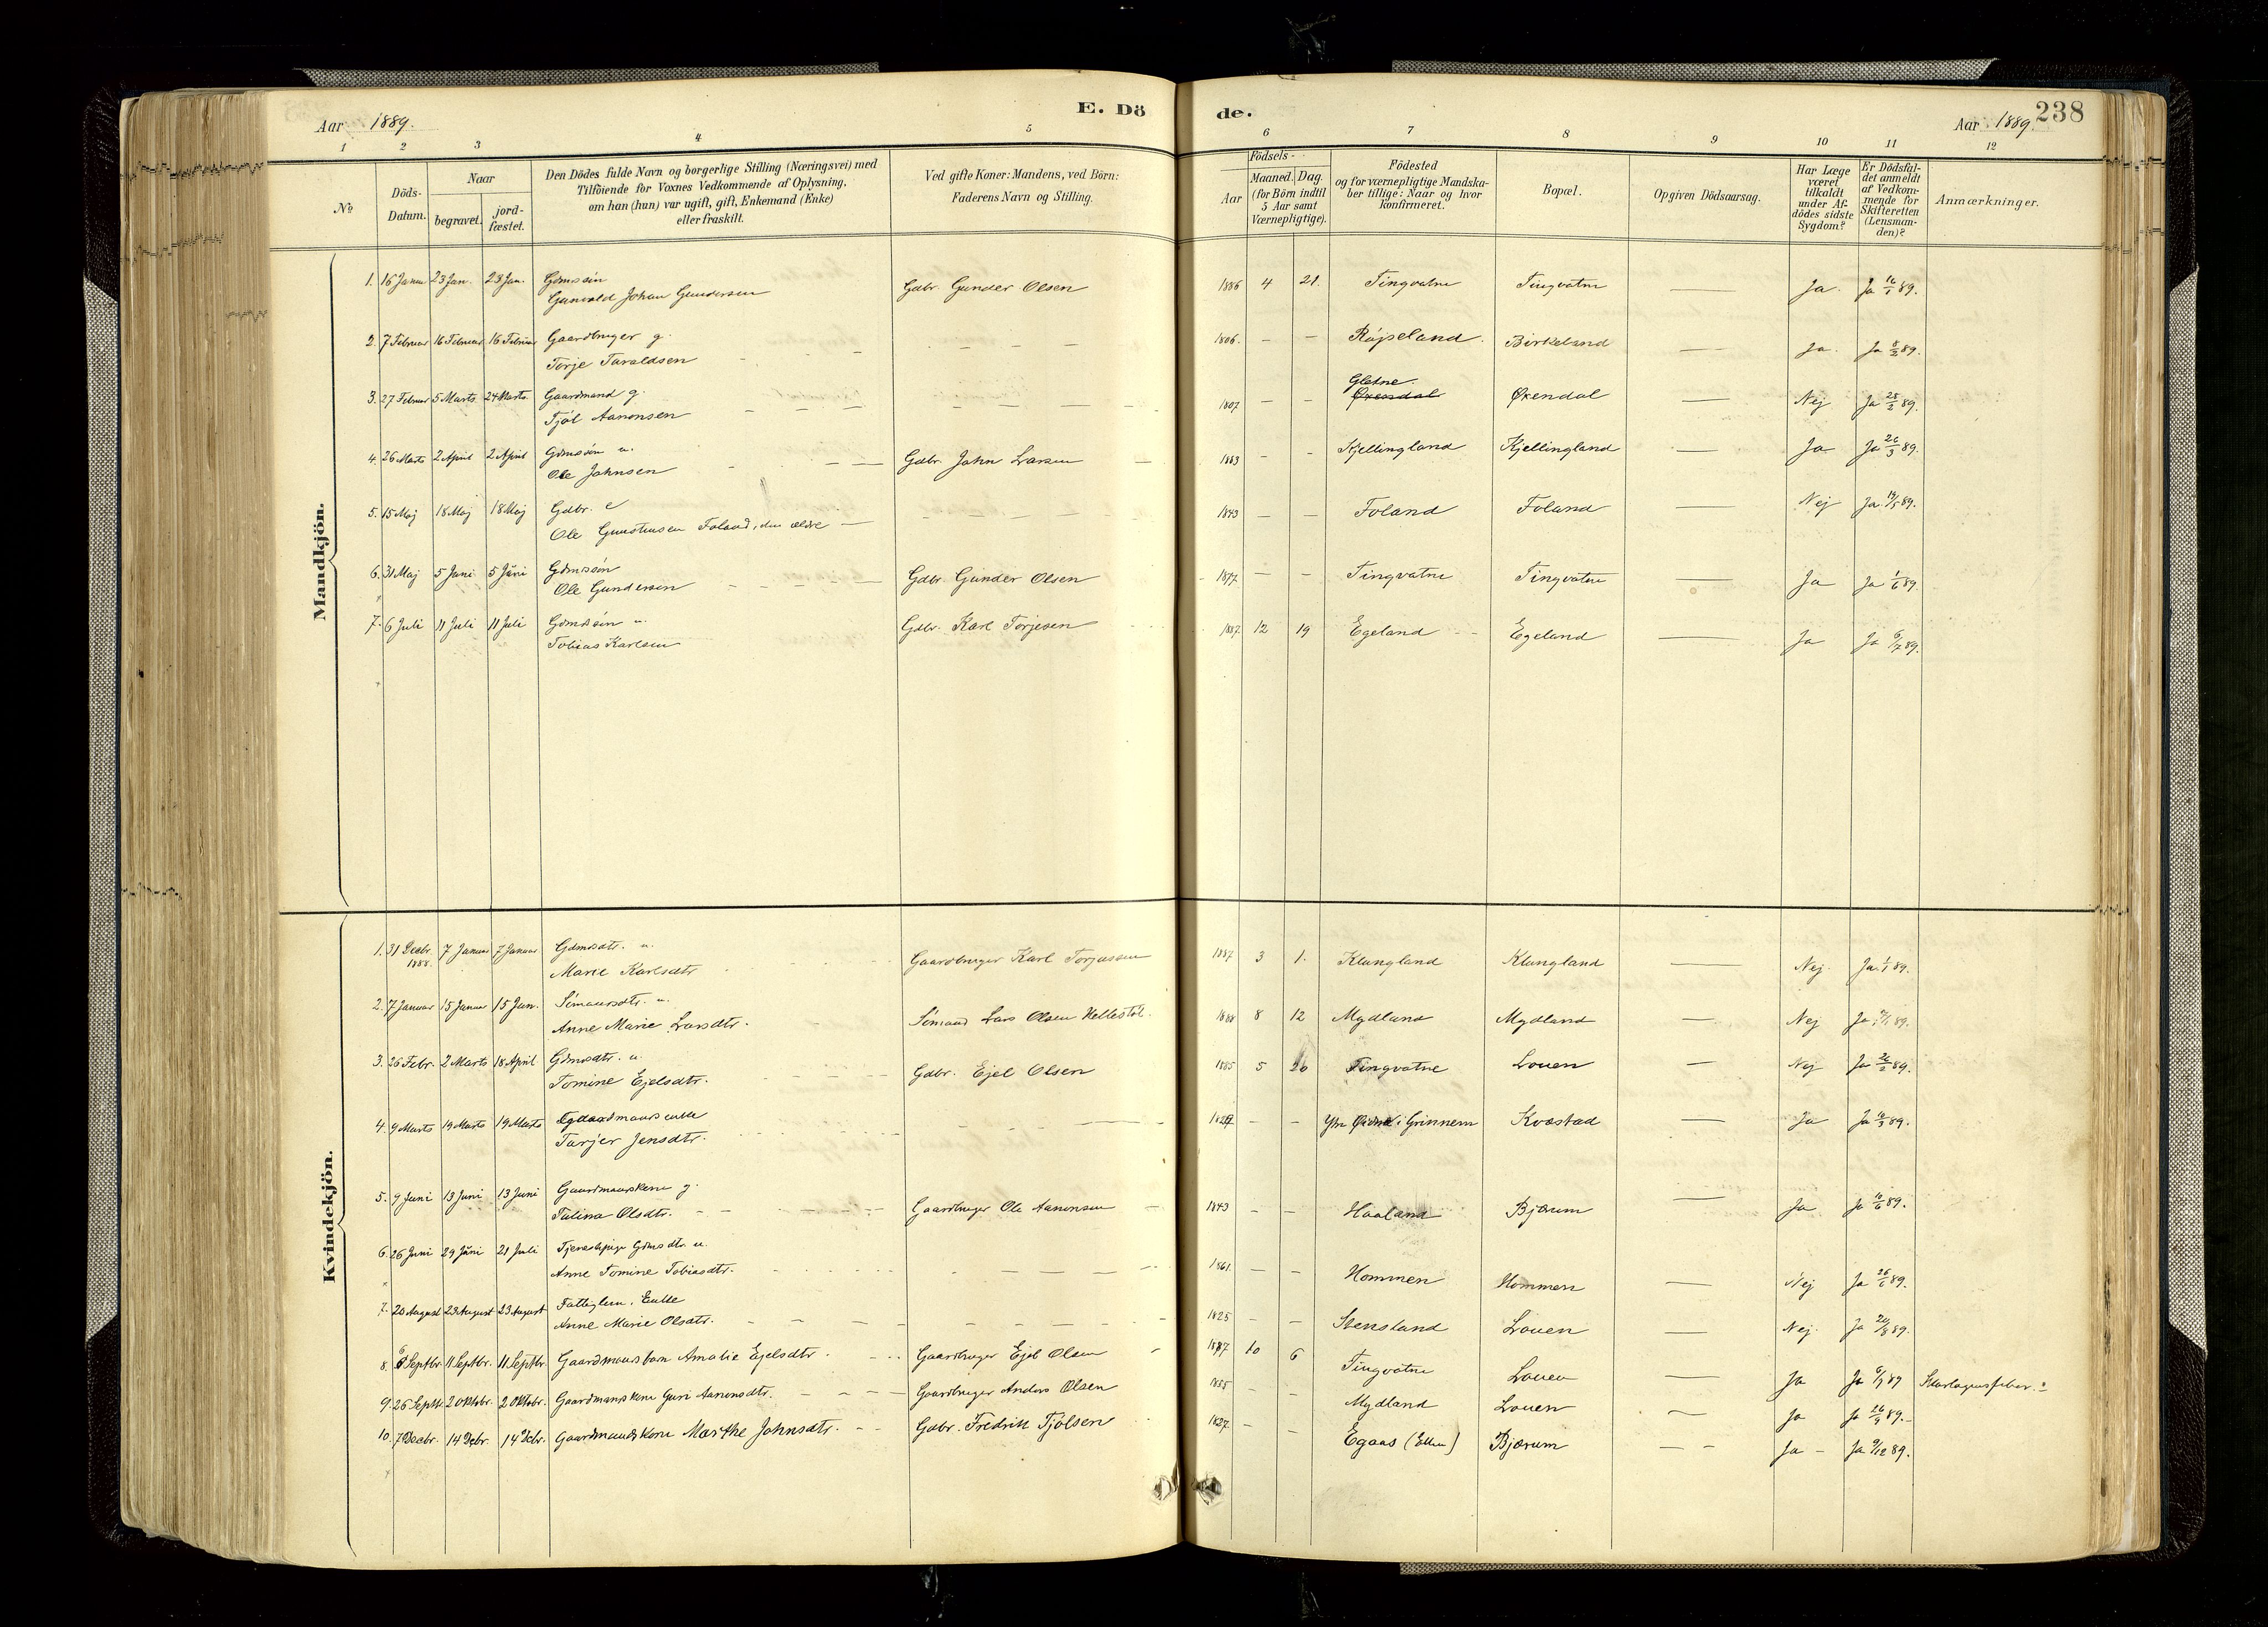 E. Dö
de.
Aar 1889.
Aar 1889.
238
1 2 3 4 5 6 7 8 9 10 11 12
No
Döds-Datum.
Naar
begravet.
jordfæstet.
Den Dödes fulde Navn og borgerlige Stilling (Næringsvei) med
Tilföiende for Voxnes Vedkommende af Oplysning,
om han (hun) var ugift, gift, Enkemand (Enke)
eller fraskilt.
Ved gifte Koner: Mandens, ved Börn:
Faderens Navn og Stilling.
Födsels-
Aar
Maaned. Dag.
(for Börn indtil
5 Aar samt
Værnepligtige).
Födested
og for værnepligtige Mandska-
ber tillige: Naar og hvor
konfirmeret.
Bopæl.
Opgiven Dödsaarsag.
Har Læge
været
tilkaldt
under Af-
dödes sidste
Sygdom?
Er Dödsfal-
det anmeldt
af Vedkom-
mende for
Skifteretten
(Lensman-
den)?
Anmærkninger.
Mandkjön.
1. 16 Januar 23 Jan. 23 Jan. Gdmssön
Gunvald Johan Gundersen Gdbr. Gunder Olsen 1886 4 21. Tingvatne Tingvatne — Ja. Ja 16/1 89.
2. 7 Februar 16 Februar 16 Februar Gaardbruger g.
Torje Taraldsen 1806. — — Röjseland Birkeland — Ja. Ja 8/2 89.
3. 27 Februar 5 Marts 24 Marts Gaardmand g.
Tjöl Aanonsen 1807 — — Gletne. Øxendal Øxendal — Nej Ja 28/2 89.
4. 26 Marts 2 April 2 April Gdmssön u.
Ole Johnsen Gdbr. John Larsen 1883 — — Kjellingland Kjellingland — Ja Ja 26/3 89.
5. 15 Maj 18 Maj 18 Maj Gdbr. e
Ole Gunstensen Foland, den ældre 1843 — — Foland Foland — Nej Ja 19/5 89.
6. 31 Maj 5 Juni 5 Juni Gdmssön
Ole Gundersen Gdbr. Gunder Olsen 1877. — — Tingvatne Tingvatne — Ja Ja 1/6 89.
7. 6 Juli 11 Juli 11 Juli Gdmssön u.
Tobias Karlsen Gdbr. Karl Torjesen 1887. 12 19 Egeland Egeland — Ja Ja 6/7 89.
Kvindekjön.
1. 31 Decbr. 1888. 7 Januar 7 Januar Gdmsdtr. u.
Marie Karlsdtr Gaardbruger Karl Torjussen 1887 3 1. Klungland Klungland — Nej. Ja 1/1 89.
2. 7 Januar 15 Januar 15 Jan. Sömandsdtr. u.
Anne Marie Larsdtr. Sömand Lars Olsen Hellestöl. 1888 8 12 Mydland Mydland — Nej Ja 89.
3. 26 Febr. 2 Marts 18 April Gdmsdtr. u.
Tomine Ejelsdtr. Gdbr. Ejel Olsen 1885 5 26 Tingvatne Louen — Nej Ja 26/2 89.
4. 9 Marts 19 Marts 19 Marts
Tarjer Jensdtr. — — i Grinnem Kvæstad — Ja Ja 89.
5. 9 Juni 13 Juni 13 Juni Gaardmandskone g.
Talina Olsdtr. Gaardbruger Ole Aanonsen 1843 — — Haaland Bjærum — Ja Ja 10/6 89.
6. 26 Juni 29 Juni 21 Juli Tjenestepige Gdmsdtr. u.
Anne Tomine Tobiasdtr. 1861. — — Hommen Hommen — Nej Ja 26/6 89.
7. 20 August 23 August 23 August Fattiglem, Enke
Anne Marie Olsdtr. 1825 — — Stensland Louen — Nej. Ja 20/8 89.
8. 6 Septbr. 11 Septbr. 11 Septbr. Gaardmandsbarn Amalie Ejelsdtr. Gaardbruger Ejel Olsen 1887 10 6 Tingvatne Louen Ja Ja 6/9 89 Skarlagensfeber.
9. 26 Septbr. 2 Oktobr. 2 Oktobr. Gaardmandskone Guri Aanonsdtr. Gaardbruger Anders Olsen 1855 — — Mydland Louen — Ja Ja 26/9 89.
10. 7 Decbr. 14 Decbr. 14 Decbr. Gaardmandskone Marthe Johnsdtr. Gdbr. Fredrik Tjölsen 1827. — — Egaas (Eiken) Bjærum — — Ja — Ja 9/12 89.